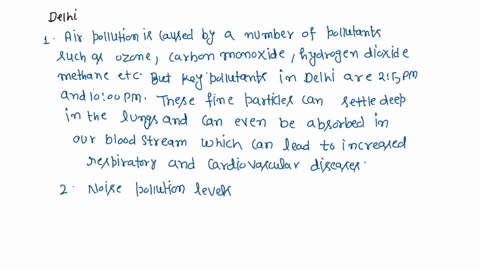 Delhi
1. Air pollution is caused by a number of pollutants
such as ozone, carbon monoxide, hydrogen dioxide
methane etc. But key pollutants in Delhi are 2:5 PM
and 10:00 PM. These fine particles can settle deep
in the lungs and can even be absorbed in
our blood stream which can lead to increased
respiratory and cardiovascular diseases.
2. Noise pollution levels